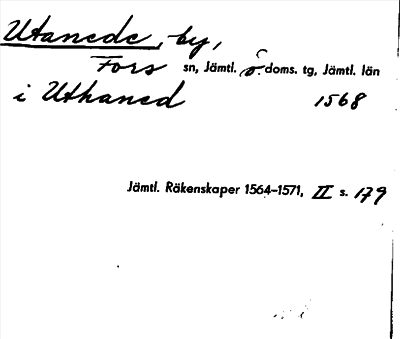 Utanede, by,
Fors sn, Jämtl. ö. doms. tg, Jämtl. län
i Uthaned 1568
Jämtl. Räkenskaper 1564-1571, II s. 179